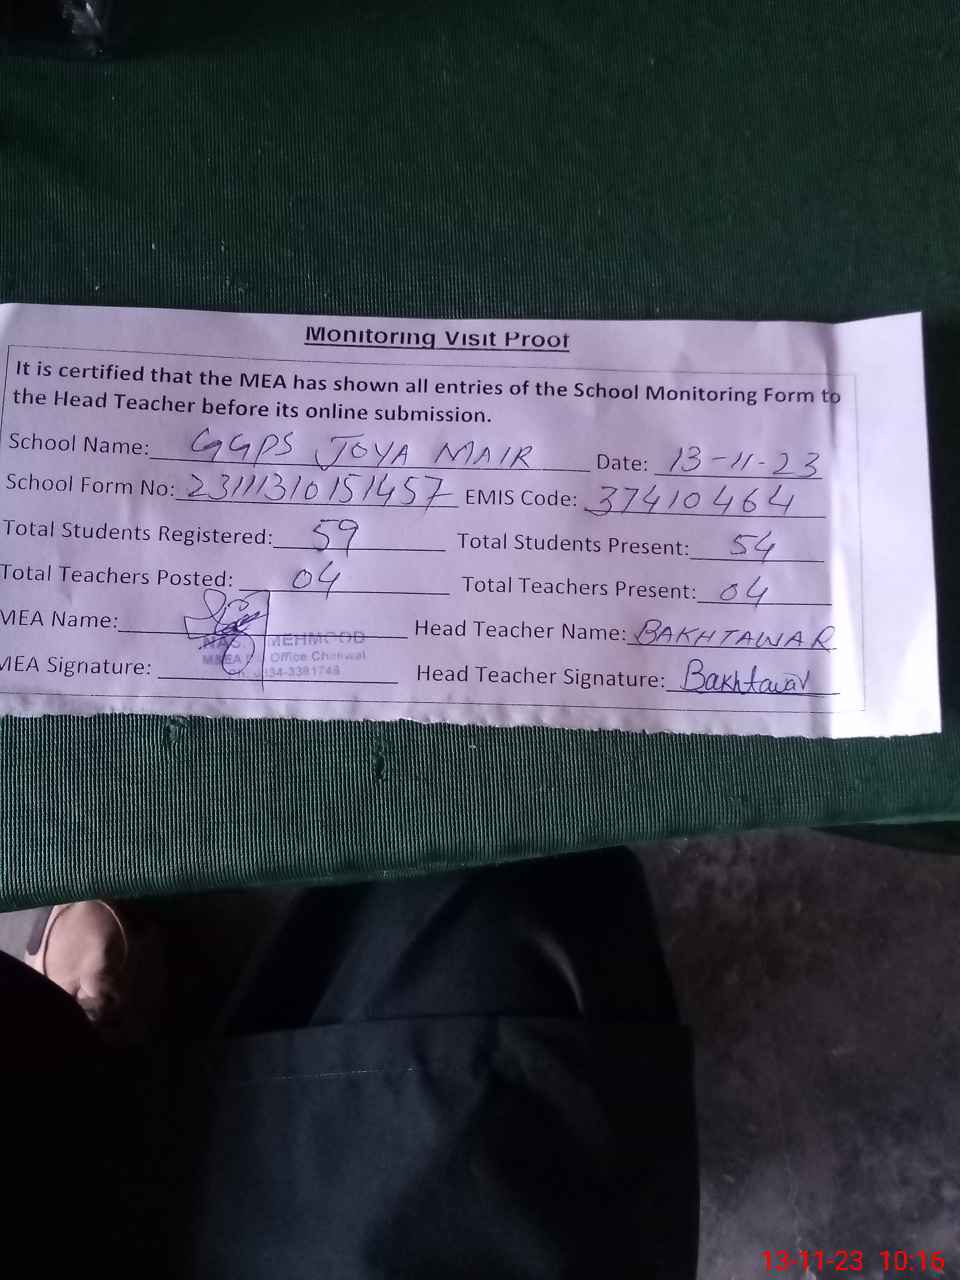 Monitoring Visit Proof
It is certified that the MEA has shown all entries of the School Monitoring Form to
the Head Teacher before its online submission.
School Name: GGPS JOYA MAIR Date: 13-11-23
School Form No: 23111310151457 EMIS Code: 37410464
Total Students Registered: 59 Total Students Present: 54
Total Teachers Posted: 04 Total Teachers Present: 04
MEA Name: Head Teacher Name: BAKHTAWAR
MEHMOOD
Office Chakwal
MEA Signature: Head Teacher Signature: Bakhtawar
13-11-23 10:16